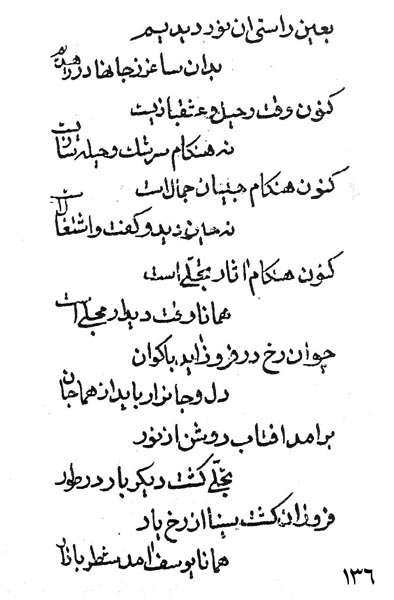 بعین راستی ان نور دیدیم
بدان ساغر ز جانها
کنون وقت رحیل و عشقبازیت
نه هنکام سرشک و حیله سازیت
کنون هنکام جمالست
نه حین زید و کفت و اشتغالست
کنون هنکام اثار تجلّے است
همانا وقت دیدار مجلّے است
چو ان رخ در فروز اید باکوان
دل و جانرا رباید از هما جان
برامد افتاب روشن از نور
تجلّے کشت دیکر بار در طور
فروزان کشت سینا از رخ یار
همانا یوسف امد
۱۳۶